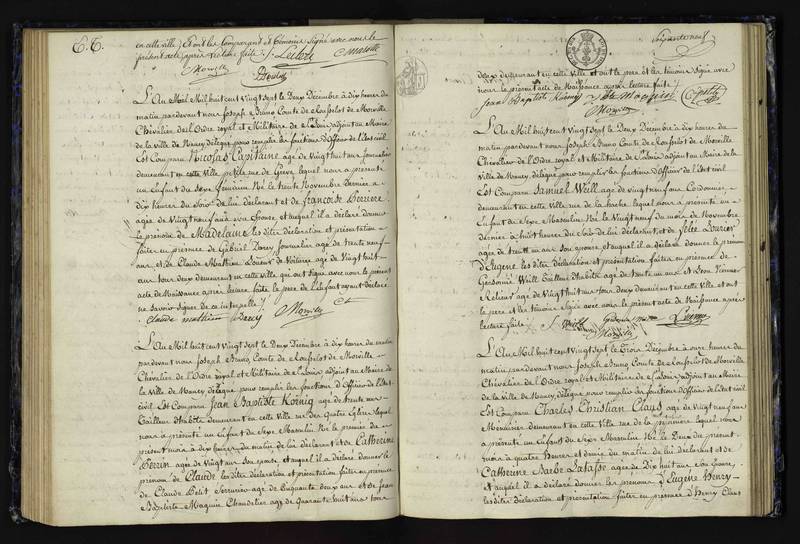 en cette ville, Et ont les Comparant et témoins Signé avec nous le
présent acte après lecture faite
L'An Mil huit cent Vingt Sept le Deux Décembre à dix heures du
matin pardevant nous Joseph Bruno Comte de
Chevalier de l'Ordre royal et Militaire de adjoint au Maire
de la ville de Nancy délégué pour remplir les fonctions d'Officier de l'Etat civil
Est Comparu Nicolas Capitaine agé de Vingt huit ans Journalier
demeurant en cette Ville petite rue de Grève lequel nous a présenté
un Enfant du Sexe féminin Né le trente Novembre Dernier à
dix heures du Soir de lui déclarant et de francoise ferriere
agée de Vingt neuf ans son Epouse et auquel il a déclaré donner
le prénom de Madelaine les dites déclaration et présentation
faites en présence de Gabriel Darcy Journalier agé de trente neuf
ans, et de Claude Mathieu Loueur de Voitures agé de Vingt huit
ans tous deux demeurant en cette ville qui ont signé avec nous le présent
acte de Naissance après lecture faite le pere de l'Enfant ayant déclaré
ne savoir Signer de ce interpellé
claude mathieu Darcy
L'An Mil huit cent Vingt sept le Deux Décembre à dix heures du matin
pardevant nous Joseph Bruno Comte de
Chevalier de l'Ordre royal et Militaire de adjoint au Maire de
la Ville de Nancy délégué pour remplir les fonctions d'Officier de l'Etat
civil Est Comparu Jean Baptiste Kornig agé de trente
Tailleur d'habits demeurant en cette Ville rue des quatre Eglises lequel
nous a présenté un Enfant du Sexe Masculin Né le premier du
présent mois à dix heures du matin de lui déclarant et de Catherine
Perrin agée de Vingt ans Son épouse et auquel il a déclaré donner le
prénom de Claude les dites déclaration et présentation faites en présence
de Claude Petit Serrurier agé de Cinquante deux ans et de Jean
Baptiste Maguin Chandelier agé de Quarante huit ans tous
deux demeurant en cette Ville et ont le pere et les témoins signé avec
nous le présent acte de Naissance après lecture faite
Jean Baptiste petit
L'An Mil huit cent Vingt Sept le Deux Décembre à dix heures du
matin pardevant nous Joseph Bruno Comte de
Chevalier de l'Ordre royal et Militaire de adjoint au Maire de la
Ville de Nancy, délégué pour remplir les fonctions d'Officier de l'Etat civil
Est Comparu Samuel Weill agé de vingt neuf ans Cordonnier
demeurant en cette Ville rue de la hache lequel nous a présenté un
Enfant du Sexe Masculin Né le Vingt neuf du mois de Novembre
dernier à huit heures du Soir de lui déclarant, et de
agée de trente un ans Son épouse et auquel il a déclaré donner le prénom
D'Eugène les dites déclaration et présentation faites en présence de
Weill Tailleur d'habits agé de trente un ans et Léon
Relieur agé de Vingt huit ans tous deux demeurant en cette Ville et ont
le pere et les témoins Signé avec nous le présent acte de Naissance après
lecture faite
L'An Mil huit cent Vingt sept le Trois Décembre à onze heures du
matin pardevant nous Joseph Bruno Comte de
Chevalier de l'Ordre royal et Militaire de adjoint au Maire
de la Ville de Nancy, délégué pour remplir les fonctions d'Officier de l'Etat civil
Est Comparu Charles Christian Claus agé de Vingt neuf ans
Menuisier demeurant en cette Ville rue de la pépinière lequel nous
a présenté un Enfant du Sexe Masculin Né le Deux du présent
mois à quatre heures et demie du matin de lui déclarant et de
Catherine Barbe Lataffe agée de Dix huit ans Son épouse,
et auquel il a déclaré donner les prénoms d'Eugène Henry
les dites Déclaration et présentation faites en présence d'Henry Claus